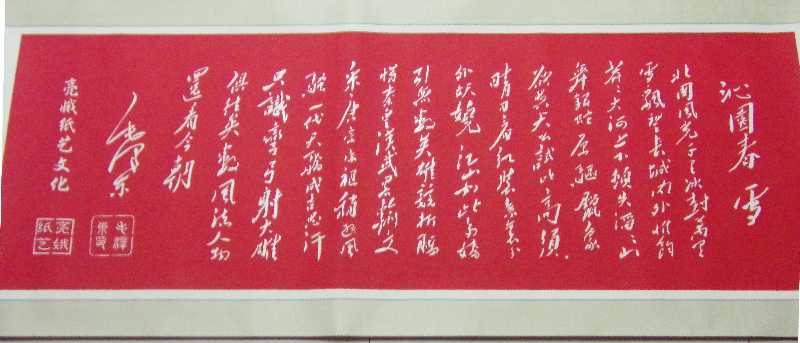 沁園春 雪
北国風光千里冰封萬里
雪飘望长城内外惟餘
莽莽大河上下頓失滔滔山
舞銀蛇原驰蠟象
欲与天公試比高須
晴日看红装素裹分
外妖娆江山如此多娇
引無數英雄競折腰
惜秦皇漢武略输文
采唐宗宋祖稍逊風
骚一代天骄成吉思汗
只識彎弓射大雕
俱往矣數風流人物
還看今朝
毛泽东
亮娥纸艺文化
亮娥纸艺